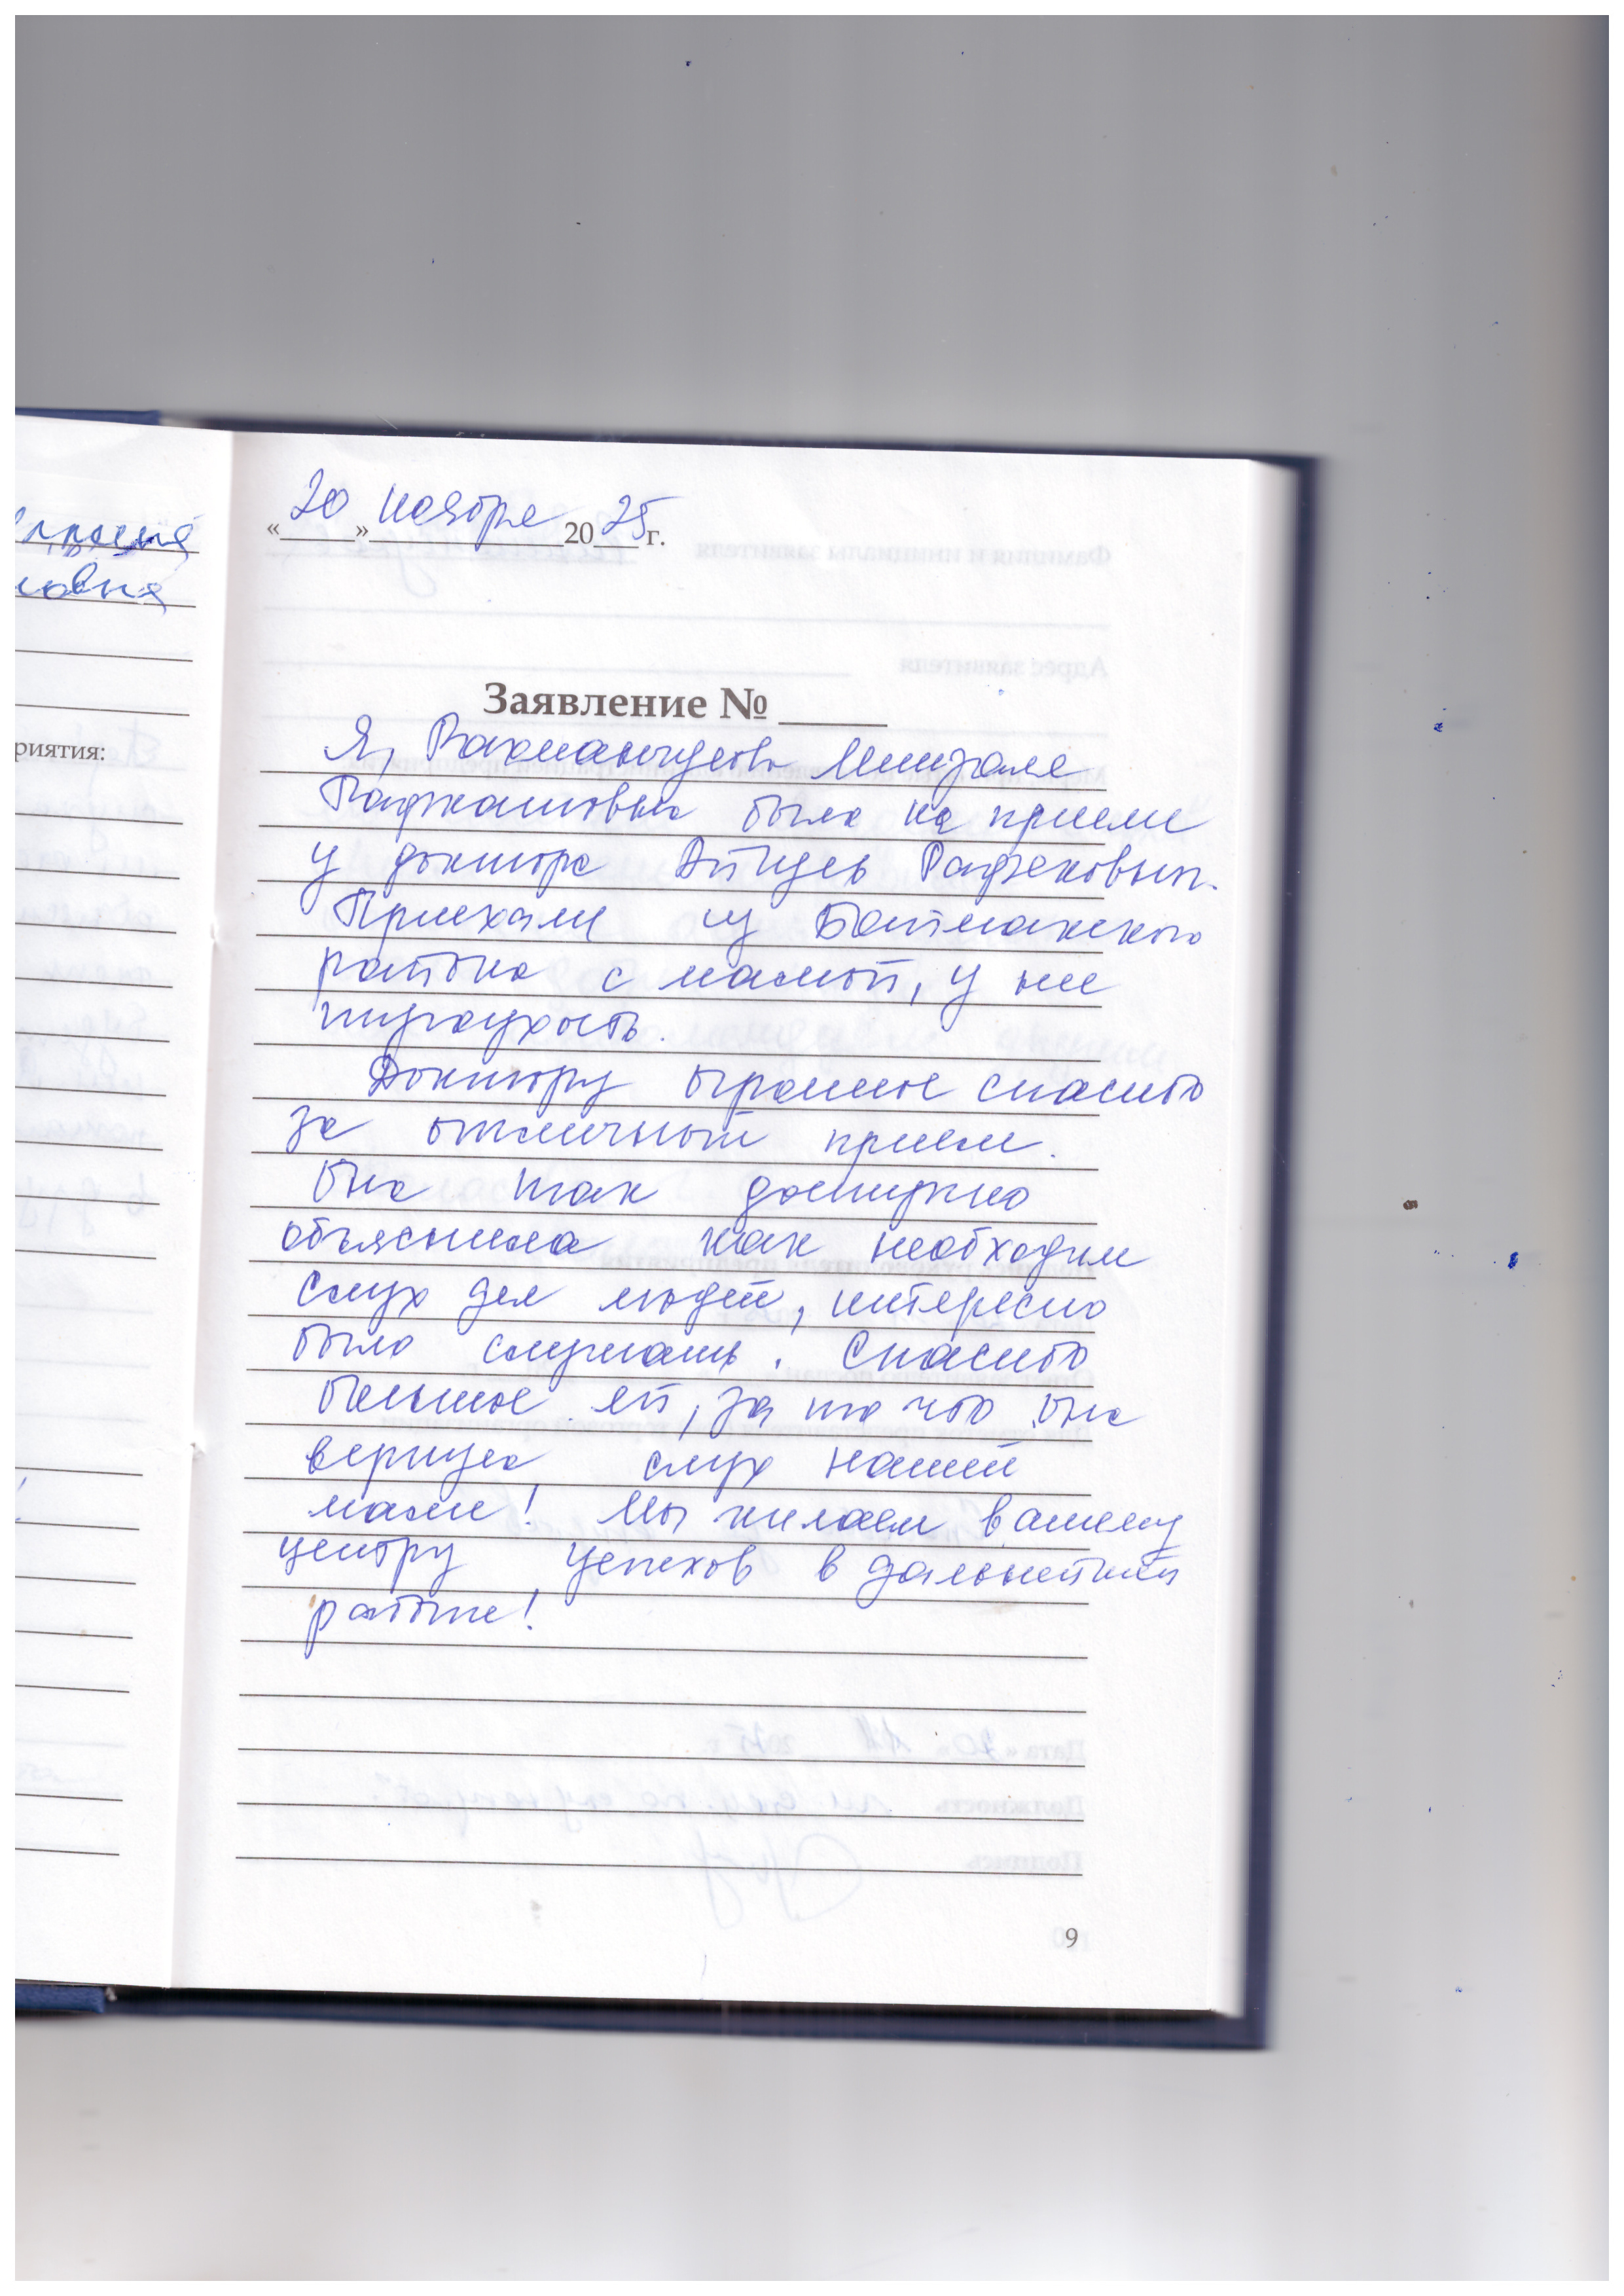 «20» ноября 2025 г.
Заявление № ____
Я, Рахмангулова Минзаля
была на приеме
у доктора Айгуль Рафековны.
Приехали из Баймакского
района с мамой, у нее
тугоухость.
Доктору огромное спасибо
за отличный прием.
Она так доступно
объяснила как необходим
слух для людей, интересно
было слушать. Спасибо
большое ей, за то что она
вернула слух нашей
маме! Мы желаем вашему
центру успехов в дальнейшей
работе!
9
овна
риятия: